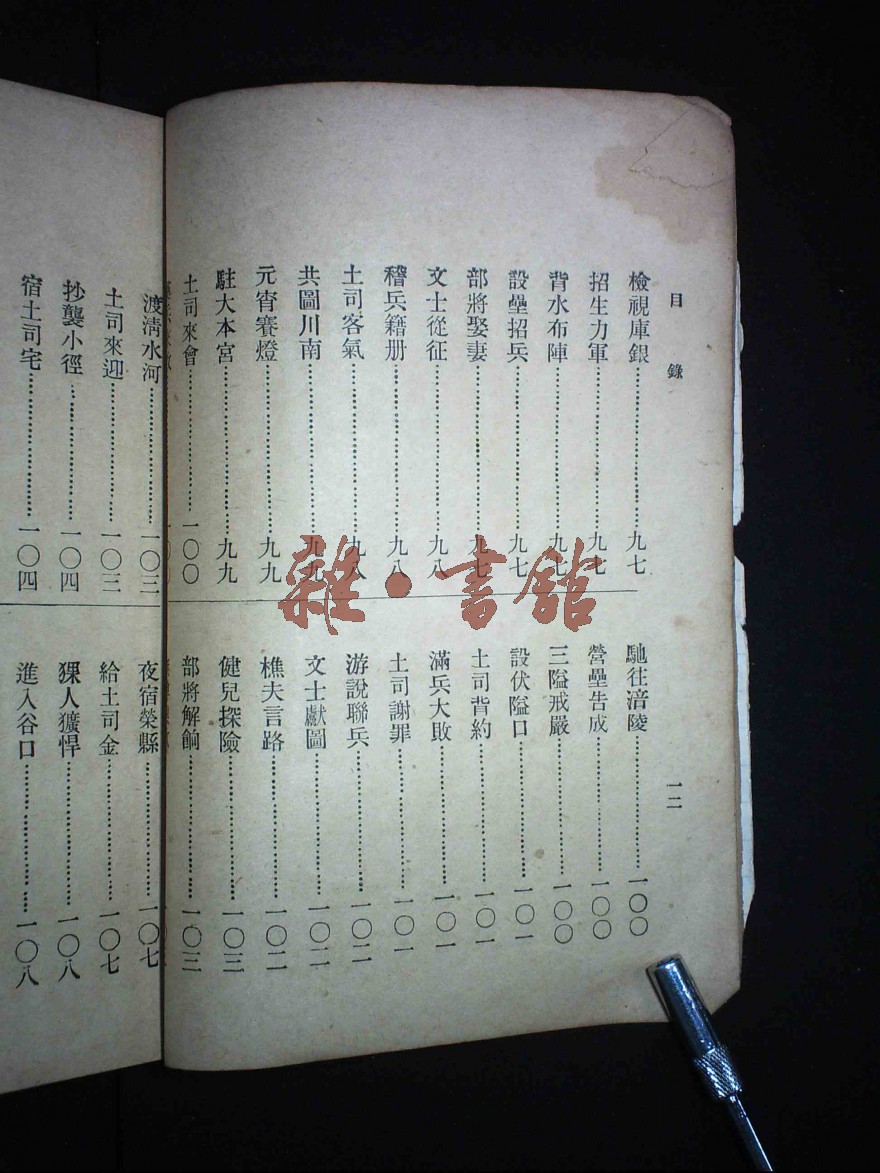 目錄
檢視庫銀⋯⋯九七
招生力軍⋯⋯九七
背水布陣⋯⋯九七
設壘招兵⋯⋯九七
部將娶妻⋯⋯九七
文士從征⋯⋯九八
稽兵籍册⋯⋯九八
土司客氣⋯⋯九八
共圖川南⋯⋯九九
元宵賽燈⋯⋯九九
駐大本宮⋯⋯九九
土司來會⋯⋯一〇〇
馳往涪陵⋯⋯一〇〇
營壘告成⋯⋯一〇〇
三隘戒嚴⋯⋯一〇〇
設伏隘口⋯⋯一〇一
土司背約⋯⋯一〇一
滿兵大敗⋯⋯一〇一
土司謝罪⋯⋯一〇一
游說聯兵⋯⋯一〇二
文士獻圖⋯⋯一〇二
樵夫言路⋯⋯一〇二
健兒探險⋯⋯一〇三
部將解餉⋯⋯一〇三
一二
渡清水河⋯⋯一〇三
土司來迎⋯⋯一〇三
抄襲小徑⋯⋯一〇四
宿土司宅⋯⋯一〇四
夜宿榮縣⋯⋯一〇七
給土司金⋯⋯一〇七
猓人獷悍⋯⋯一〇八
進入谷口⋯⋯一〇八
雜·書館